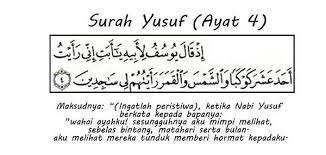 Surah Yusuf (Ayat 4)
إِذْ قَالَ يُوسُفُ لِأَبِيهِ يَٰٓأَبَتِ إِنِّى رَأَيْتُ
أَحَدَ عَشَرَ كَوْكَبًا وَٱلشَّمْسَ وَٱلْقَمَرَ رَأَيْتُهُمْ لِى سَٰجِدِينَ ٤
Maksudnya: "(Ingatlah peristiwa), ketika Nabi Yusuf
berkata kepada bapanya:
"wahai ayahku! sesungguhnya aku mimpi melihat,
sebelas bintang, matahari serta bulan.
aku melihat mereka tunduk memberi hormat kepadaku.